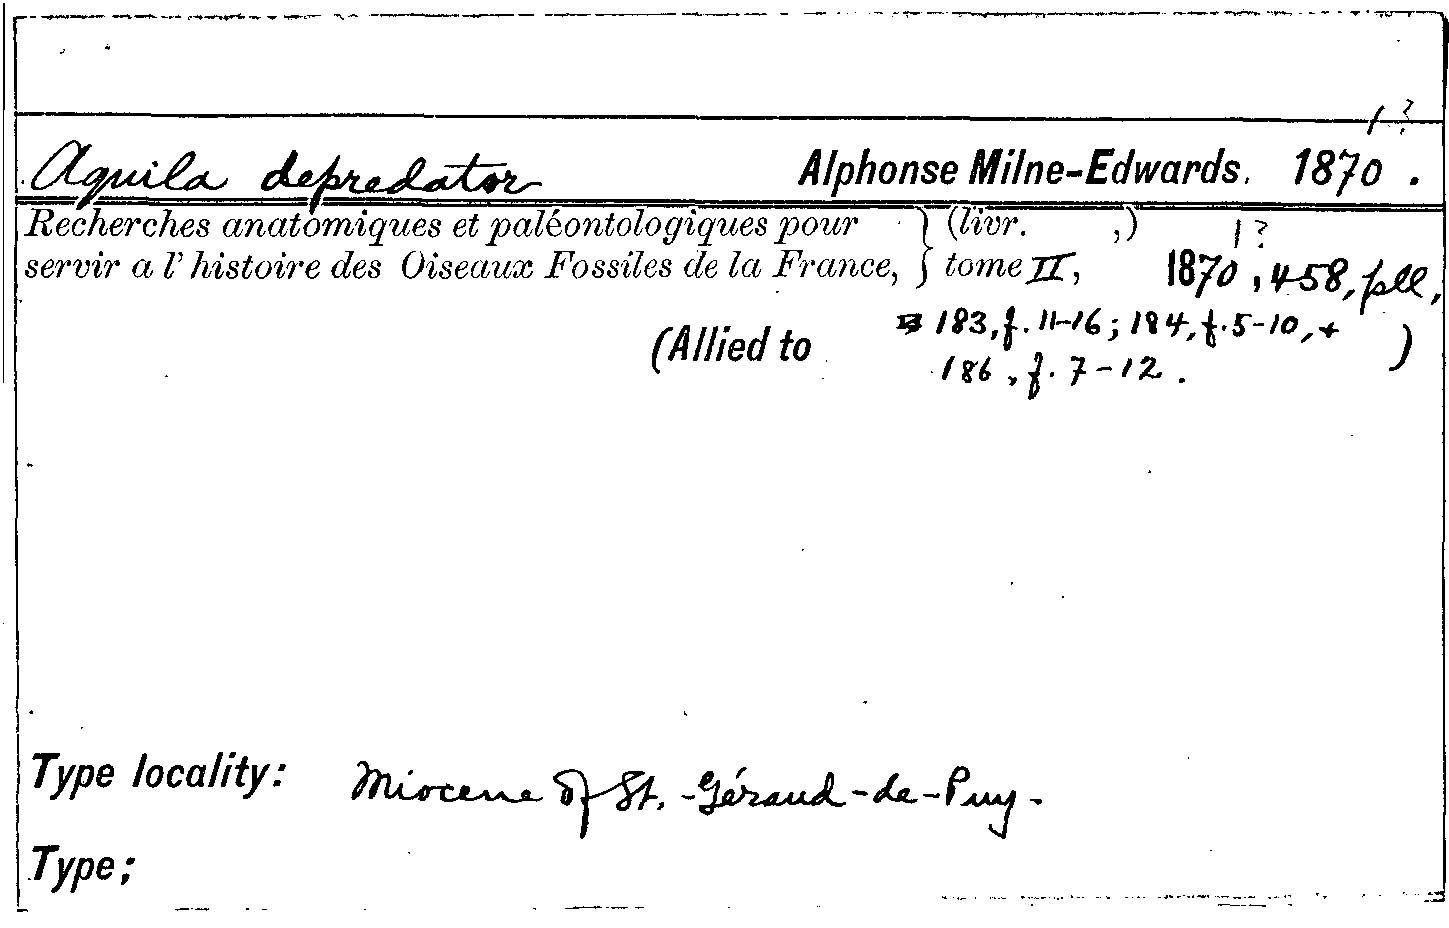 1?
Aquila depredator Alphonse Milne-Edwards. 1870.
Recherches anatomiques et paléontologiques pour } (livr. ,) 1?
servir a l'histoire des Oiseaux Fossiles de la France, } tome II, 1870, 458, pll,
(Allied to 183, f. 11-16; 184, f. 5-10, + )
186, f. 7-12.
Type locality: Miocene of St.-Géraud-de-Puy-
Type;